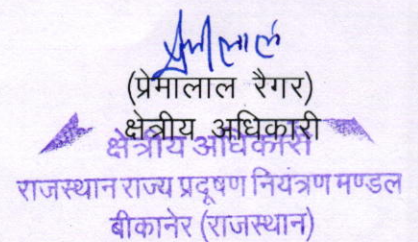 प्रेमालाल
(प्रेमालाल रैगर)
क्षेत्रीय अधिकारी
क्षेत्रीय अधिकारी
राजस्थान राज्य प्रदूषण नियंत्रण मण्डल
बीकानेर (राजस्थान)